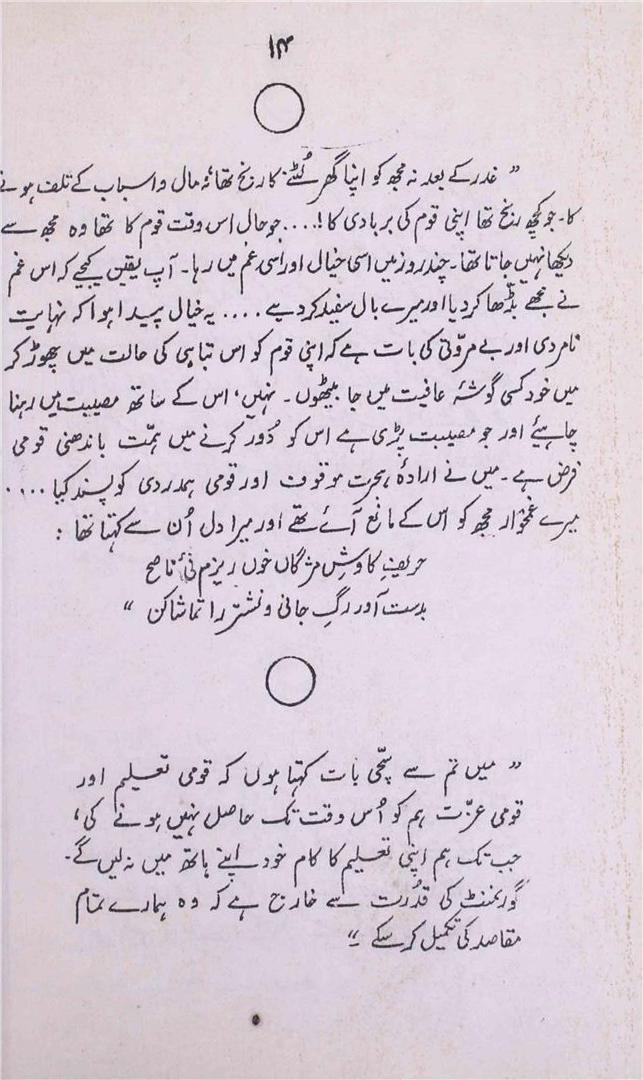 ۱۴
” غدر کے بعد نہ مجھ کو اپنا گھر لُٹنے کا رنج تھا، نہ مال و اسباب کے تلف ہونے
کا۔ جو کچھ رنج تھا اپنی قوم کی بربادی کا!.... جو حال اس وقت قوم کا تھا وہ مجھ سے
دیکھا نہیں جاتا تھا۔ چند روز میں اسی خیال اور اسی غم میں رہا۔ آپ یقین کیجیے کہ اس غم
نے مجھے بڈّھا کر دیا اور میرے بال سفید کر دیے .... یہ خیال پیدا ہوا کہ نہایت
نامردی اور بے مروّتی کی بات ہے کہ اپنی قوم کو اس تباہی کی حالت میں چھوڑ کر
میں خود کسی گوشۂ عافیت میں جا بیٹھوں۔ نہیں، اس کے ساتھ مصیبت میں رہنا
چاہیئے اور جو مصیبت پڑی ہے اس کو دُور کرنے میں ہمّت باندھنی قومی
فرض ہے۔ میں نے ارادۂ ہجرت موقوف اور قومی ہمدردی کو پسند کیا ....
میرے غمخوار مجھ کو اس کے مانع آئے تھے اور میرا دل اُن سے کہتا تھا :
حریفِ کاوشِ مژگاں خوں ریزم نئ ناصح
بدست آور رگِ جانی و نشتر را تماشا کن “
” میں تم سے سچّی بات کہتا ہوں کہ قومی تعلیم اور
قومی عزّت ہم کو اُس وقت تک حاصل نہیں ہونے کی،
جب تک ہم اپنی تعلیم کا کام خود اپنے ہاتھ میں نہ لیں گے۔
گورنمنٹ کی قُدرت سے خارج ہے کہ وہ ہمارے تمام
مقاصد کی تکمیل کر سکے ۔“